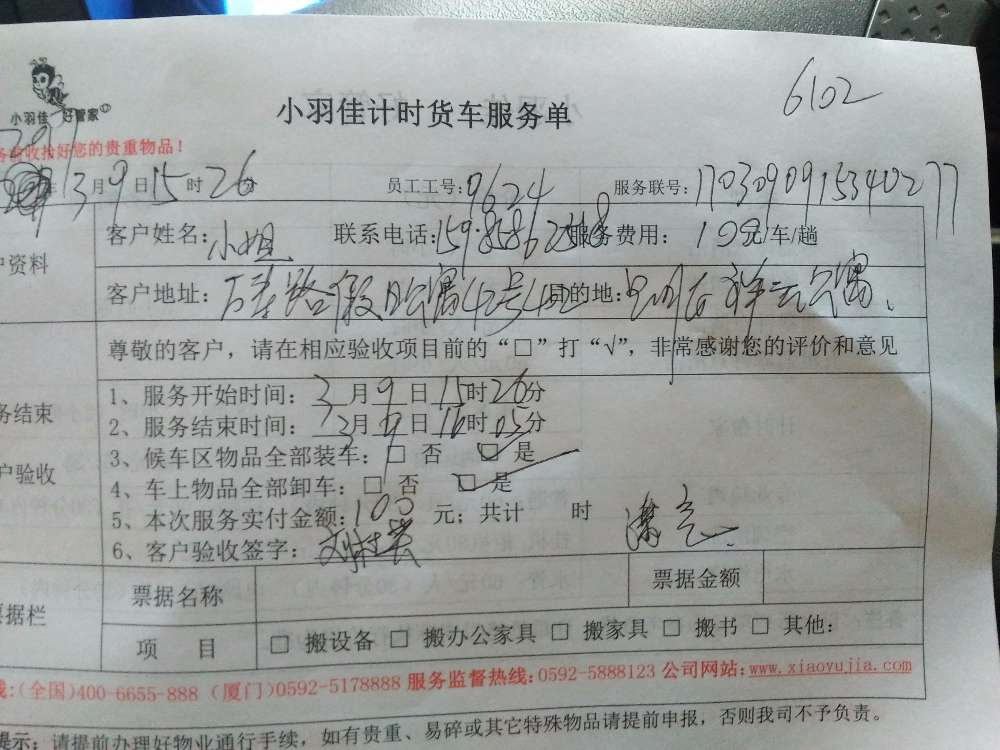 6102
小羽佳 好管家
小羽佳计时货车服务单
收拾好您的贵重物品！
3月9日15时26分 员工工号：9624 服务联号：1703090915340277
户资料 客户姓名：小姐 联系电话：159 服务费用：100元/车/趟
客户地址：假日公寓42号 目的地：祥云公寓
尊敬的客户，请在相应验收项目前的“□”打“√”，非常感谢您的评价和意见
务结束
户验收
1、服务开始时间：3月9日15时26分
2、服务结束时间：3月9日16时05分
3、候车区物品全部装车：□ 否 □ 是
4、车上物品全部卸车：□ 否 □ 是
5、本次服务实付金额：100元；共计 时
6、客户验收签字：
票据栏 票据名称 票据金额
项 目 □ 搬设备 □ 搬办公家具 □ 搬家具 □ 搬书 □ 其他：
线：(全国)400-6655-888 (厦门)0592-5178888 服务监督热线：0592-5888123 公司网站：www.xiaoyujia.com
提示：请提前办理好物业通行手续，如有贵重、易碎或其它特殊物品请提前申报，否则我司不予负责。